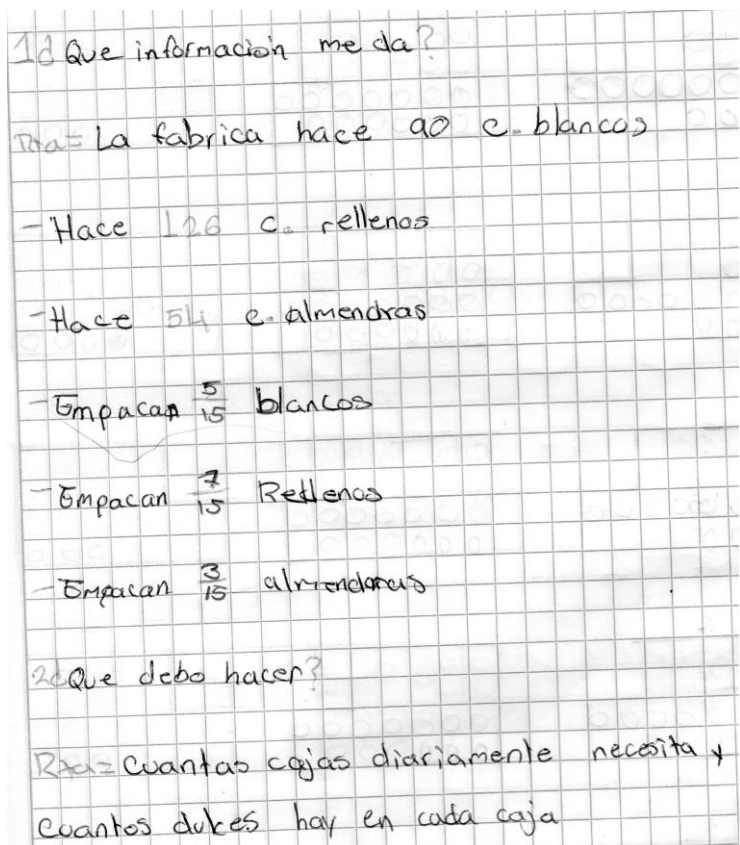 1¿ Que información me da?
Rta= La fabrica hace 90 c. blancos
- Hace 126 c. rellenos
- Hace 54 c. almendras
- Empacan 5/15 blancos
- Empacan 7/15 Rellenos
- Empacan 3/15 almendaras
2¿Que debo hacer?
Rta= cuantas cajas diariamente necesita y
cuantos dulces hay en cada caja